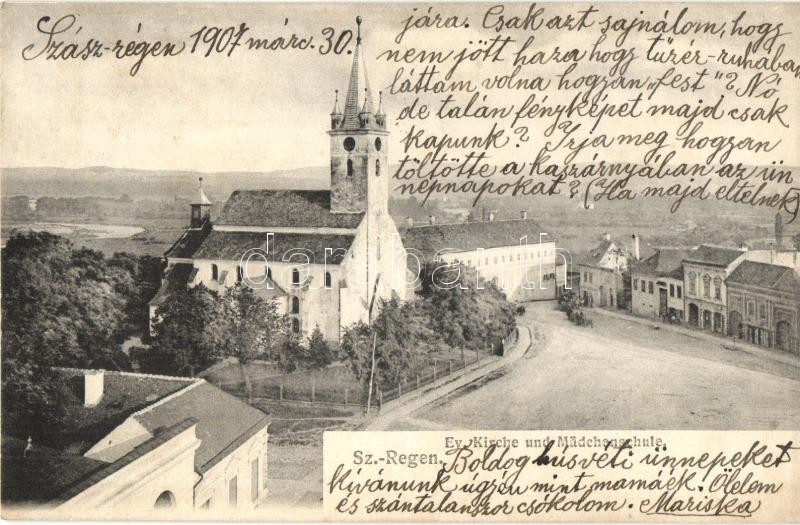 Szász-régen 1907 márc. 30.
jára. Csak azt sajnálom, hogy
nem jött haza hogy tüzér-ruhában
láttam volna hogyan „fest"? Nó
de talán fényképet majd csak
kapunk? Irja meg hogyan
töltötte a kaszárnyában az ün
nepnapokat? (Ha majd eltelnek)
darabanth.com
Ev. Kirche und Mädchenschule.
Sz.-Regen.
Boldog húsvéti ünnepeket
kivánunk úgy mint mamáék. Ölelem
és szántalanszor csókolom. Mariska